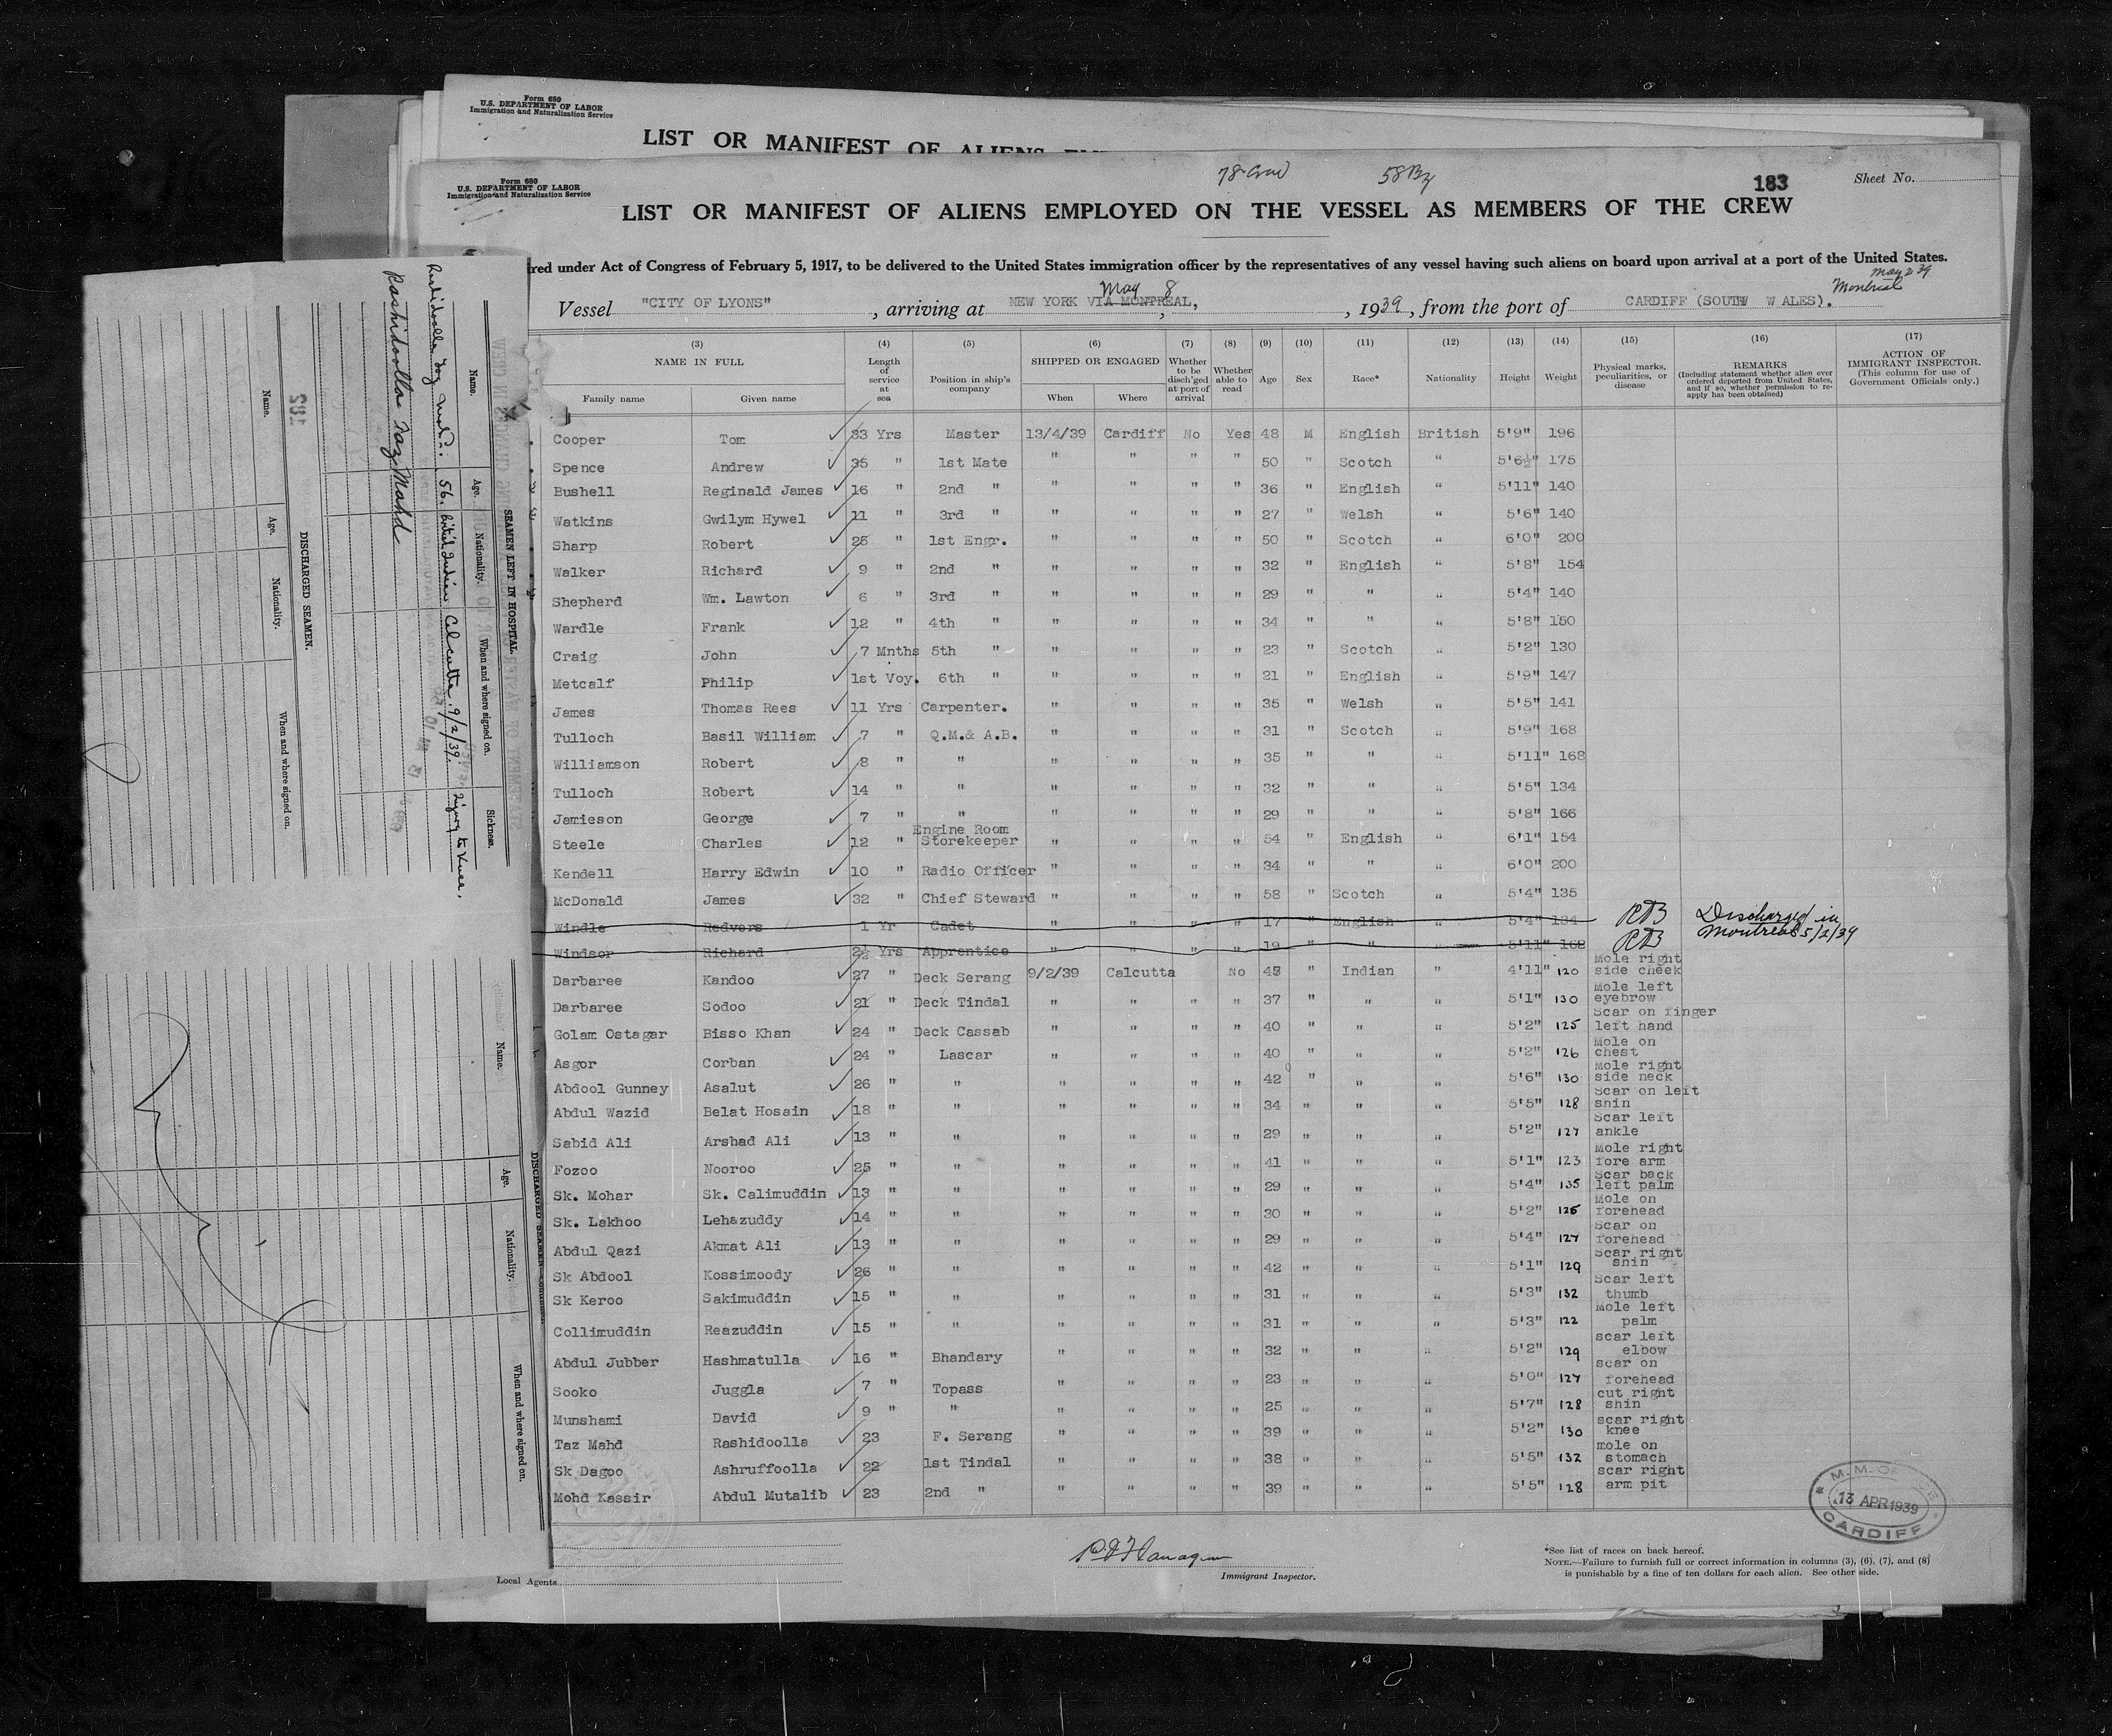 Form 680
U.S. DEPARTMENT OF LABOR
Immigration and Naturalization Service
LIST OR MANIFEST OF ALIENS
Form 680
U.S. DEPARTMENT OF LABOR
Immigration and Naturalization Service
78 Crew 58 183 Sheet No.
LIST OR MANIFEST OF ALIENS EMPLOYED ON THE VESSEL AS MEMBERS OF THE CREW
red under Act of Congress of February 5, 1917, to be delivered to the United States immigration officer by the representatives of any vessel having such aliens on board upon arrival at a port of the United States.
May 8 Montreal May 2 39
Vessel "CITY OF LYONS", arriving at NEW YORK VIA MONTREAL, 1939, from the port of CARDIFF (SOUTH WALES).
(3) (4) (5) (6) (7) (8) (9) (10) (11) (12) (13) (14) (15) (16) (17)
NAME IN FULL Length of service at sea Position in ship's company SHIPPED OR ENGAGED Whether to be disch'ged at port of arrival Whether able to read Age Sex Race* Nationality Height Weight Physical marks, peculiarities, or disease REMARKS (Including statement whether alien ever ordered deported from United States, and if so, whether permission to re-apply has been obtained) ACTION OF IMMIGRANT INSPECTOR. (This column for use of Government Officials only.)
Family name Given name When Where
Cooper Tom 33 Yrs Master 13/4/39 Cardiff No Yes 48 M English British 5'9" 196
Spence Andrew 35 " 1st Mate " " " " 50 " Scotch " 5'6½" 175
Bushell Reginald James 16 " 2nd " " " " " 36 " English " 5'11" 140
Watkins Gwilym Hywel 11 " 3rd " " " " " 27 " Welsh " 5'6" 140
Sharp Robert 25 " 1st Engr. " " " " 50 " Scotch " 6'0" 200
Walker Richard 9 " 2nd " " " " " 32 " English " 5'8" 154
Shepherd Wm. Lawton 6 " 3rd " " " " " 29 " " " 5'4" 140
Wardle Frank 12 " 4th " " " " " 34 " " " 5'8" 150
Craig John 7 Mnths 5th " " " " " 23 " Scotch " 5'2" 130
Metcalf Philip 1st Voy. 6th " " " " " 21 " English " 5'9" 147
James Thomas Rees 11 Yrs Carpenter. " " " " 35 " Welsh " 5'5" 141
Tulloch Basil William 7 " Q.M.& A.B. " " " " 31 " Scotch " 5'9" 168
Williamson Robert 8 " " " " " " 35 " " " 5'11" 168
Tulloch Robert 14 " " " " " " 32 " " " 5'5" 134
Jamieson George 7 " " " " " " 29 " " " 5'8" 166
Steele Charles 12 " Engine Room Storekeeper " " " " 54 " English " 6'1" 154
Kendell Harry Edwin 10 " Radio Officer " " " " 34 " " " 6'0" 200
McDonald James 32 " Chief Steward " " " " 58 " Scotch " 5'4" 135
Windle Redvers 1 Yr Cadet " " " " 17 " English " 5'4" 134 RB Discharged in
Windsor Richard 2½ Yrs Apprentice " " " " 19 " " " 5'11" 168 RB Montreal 5/2/39
Darbaree Kandoo 27 " Deck Serang 9/2/39 Calcutta No 45 " Indian " 4'11" 120 Mole right side cheek
Darbaree Sodoo 21 " Deck Tindal " " " " 37 " " " 5'1" 130 Mole left eyebrow
Golam Ostagar Bisso Khan 24 " Deck Cassab " " " " 40 " " " 5'2" 125 Scar on finger left hand
Asgor Corban 24 " Lascar " " " " 40 " " " 5'2" 126 Mole on chest
Abdool Gunney Asalut 26 " " " " " " 42 " " " 5'6" 130 Mole right side neck
Abdul Wazid Belat Hosain 18 " " " " " " 34 " " " 5'5" 128 Scar on left shin
Sabid Ali Arshad Ali 13 " " " " " " 29 " " " 5'2" 127 Scar left ankle
Fozoo Nooroo 25 " " " " " " 41 " " " 5'1" 123 Mole right fore arm
Sk. Mohar Sk. Calimuddin 13 " " " " " " 29 " " " 5'4" 135 Scar back left palm
Sk. Lakhoo Lehazuddy 14 " " " " " " 30 " " " 5'2" 125 Mole on forehead
Abdul Qazi Akmat Ali 13 " " " " " " 29 " " " 5'4" 127 Scar on forehead
Sk Abdool Kossimoody 26 " " " " " " 42 " " " 5'1" 129 Scar right shin
Sk Keroo Sakimuddin 15 " " " " " " 31 " " " 5'3" 132 Scar left thumb
Collimuddin Reazuddin 15 " " " " " " 31 " " " 5'3" 122 Mole left palm
Abdul Jubber Hashmatulla 16 " Bhandary " " " " 32 " " " 5'2" 129 scar left elbow
Sooko Juggla 7 " Topass " " " " 23 " " " 5'0" 127 scar on forehead
Munshami David 9 " " " " " " 25 " " " 5'7" 128 cut right shin
Taz Mahd Rashidoolla 23 F. Serang " " " " 39 " " " 5'2" 130 scar right knee
Sk Dagoo Ashruffoolla 22 1st Tindal " " " " 38 " " " 5'5" 132 mole on stomach
Mohd Kassir Abdul Mutalib 23 2nd " " " " " 39 " " " 5'5" 128 scar right arm pit
M.M. OFFICE
13 APR 1939
CARDIFF
Local Agents
Immigrant Inspector.
*See list of races on back hereof.
NOTE.—Failure to furnish full or correct information in columns (3), (6), (7), and (8) is punishable by a fine of ten dollars for each alien. See other side.
SEAMEN LEFT IN HOSPITAL
Name. Age. Nationality. When and where signed on. Sickness.
Rashidoolla Taz Mahd. 56. British Indian Calcutta. 9/2/39. Injury to knee,
Rashidoolla Taz Mahd
DISCHARGED SEAMEN.
Name. Age. Nationality. When and where signed on.
182
DISCHARGED SEAMEN
Name. Age. Nationality. When and where signed on.